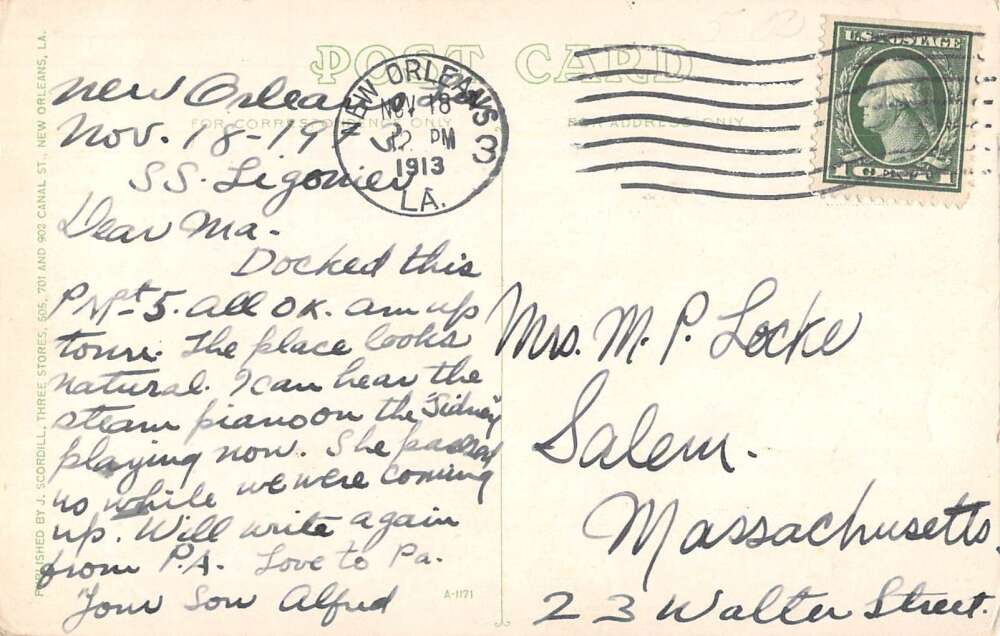 POST CARD
FOR CORRESPONDENCE ONLY
FOR ADDRESS ONLY
U.S. POSTAGE
1 C 1
NEW ORLEANS
NOV 18
PM
1913
3
LA.
New Orleans
Nov. 18-19
S.S. Ligonier
Dear Ma-
Docked this
P.M. at 5. all OK. am up
town. The place looks
natural. I can hear the
steam piano on the "Sidney"
playing now. She passed
us while we were coming
up. Will write again
from P.A. Love to Pa.
Your Son Alfred
Mrs. M. P. Locke
Salem.
Massachusetts.
23 Walter Street.
A-1171
PUBLISHED BY J. SCORDILL, THREE STORES, 505, 701 AND 902 CANAL ST., NEW ORLEANS, LA.